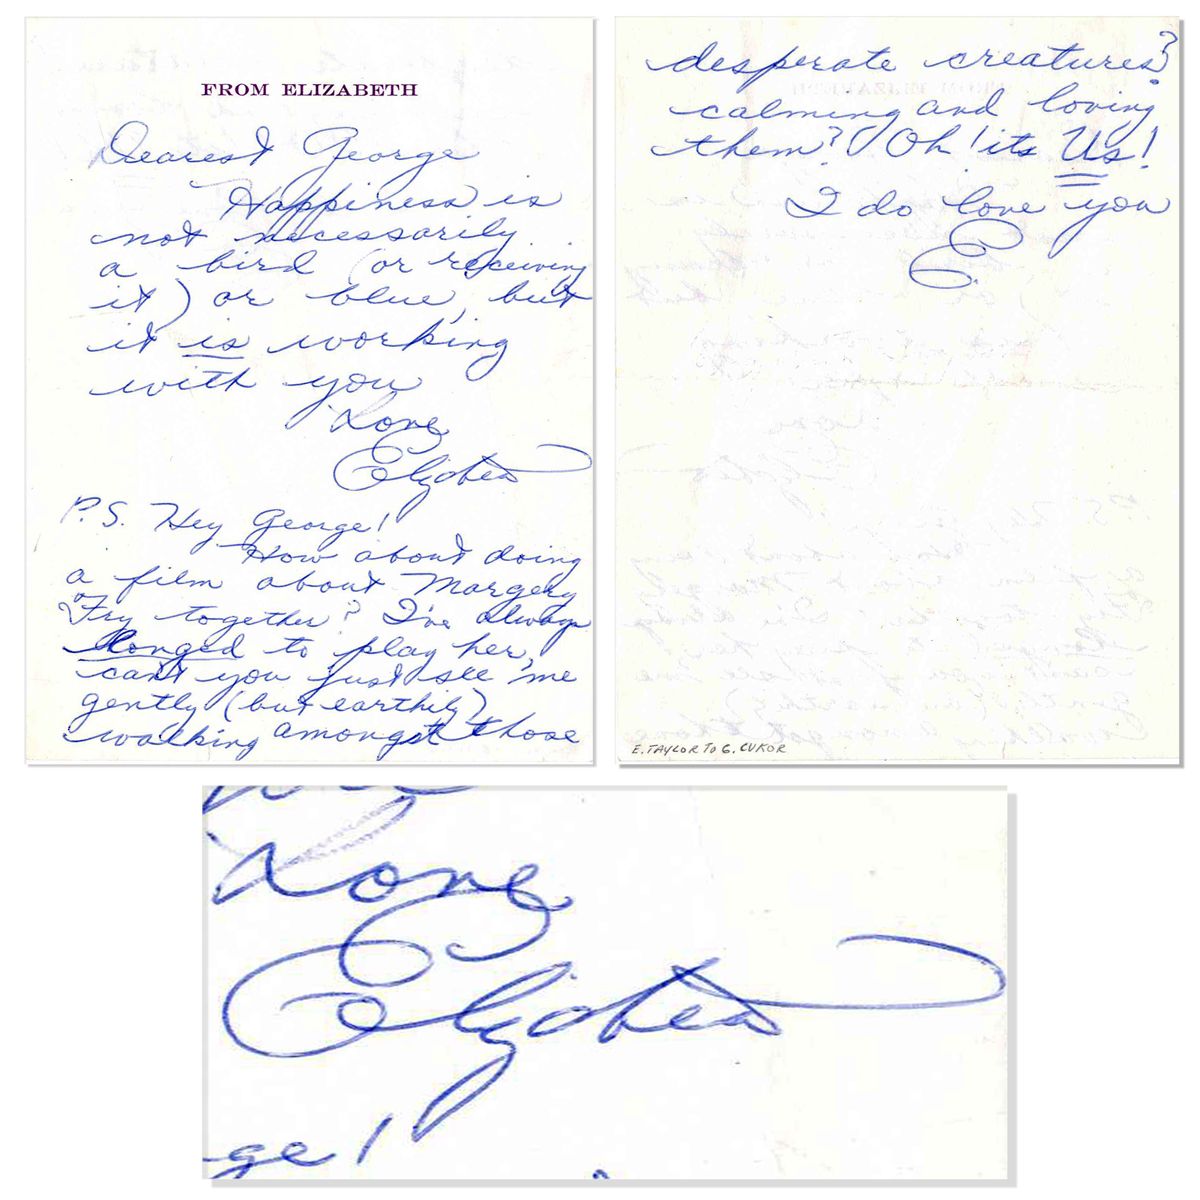 FROM ELIZABETH
Dearest George
Happiness is
not necessarily
a bird (or receiving
it) or blue, but
it is working
with you
Love
Elizabeth
P.S. Hey George!
How about doing
a film about Margery
Fry together? I've always
longed to play her,
can't you just see me
gently (but earthily)
walking amongst those
desperate creatures?
calming and loving
them? Oh! its Us!
I do love you
E.
E. TAYLOR TO G. CUKOR
Love
Elizabeth
ge!